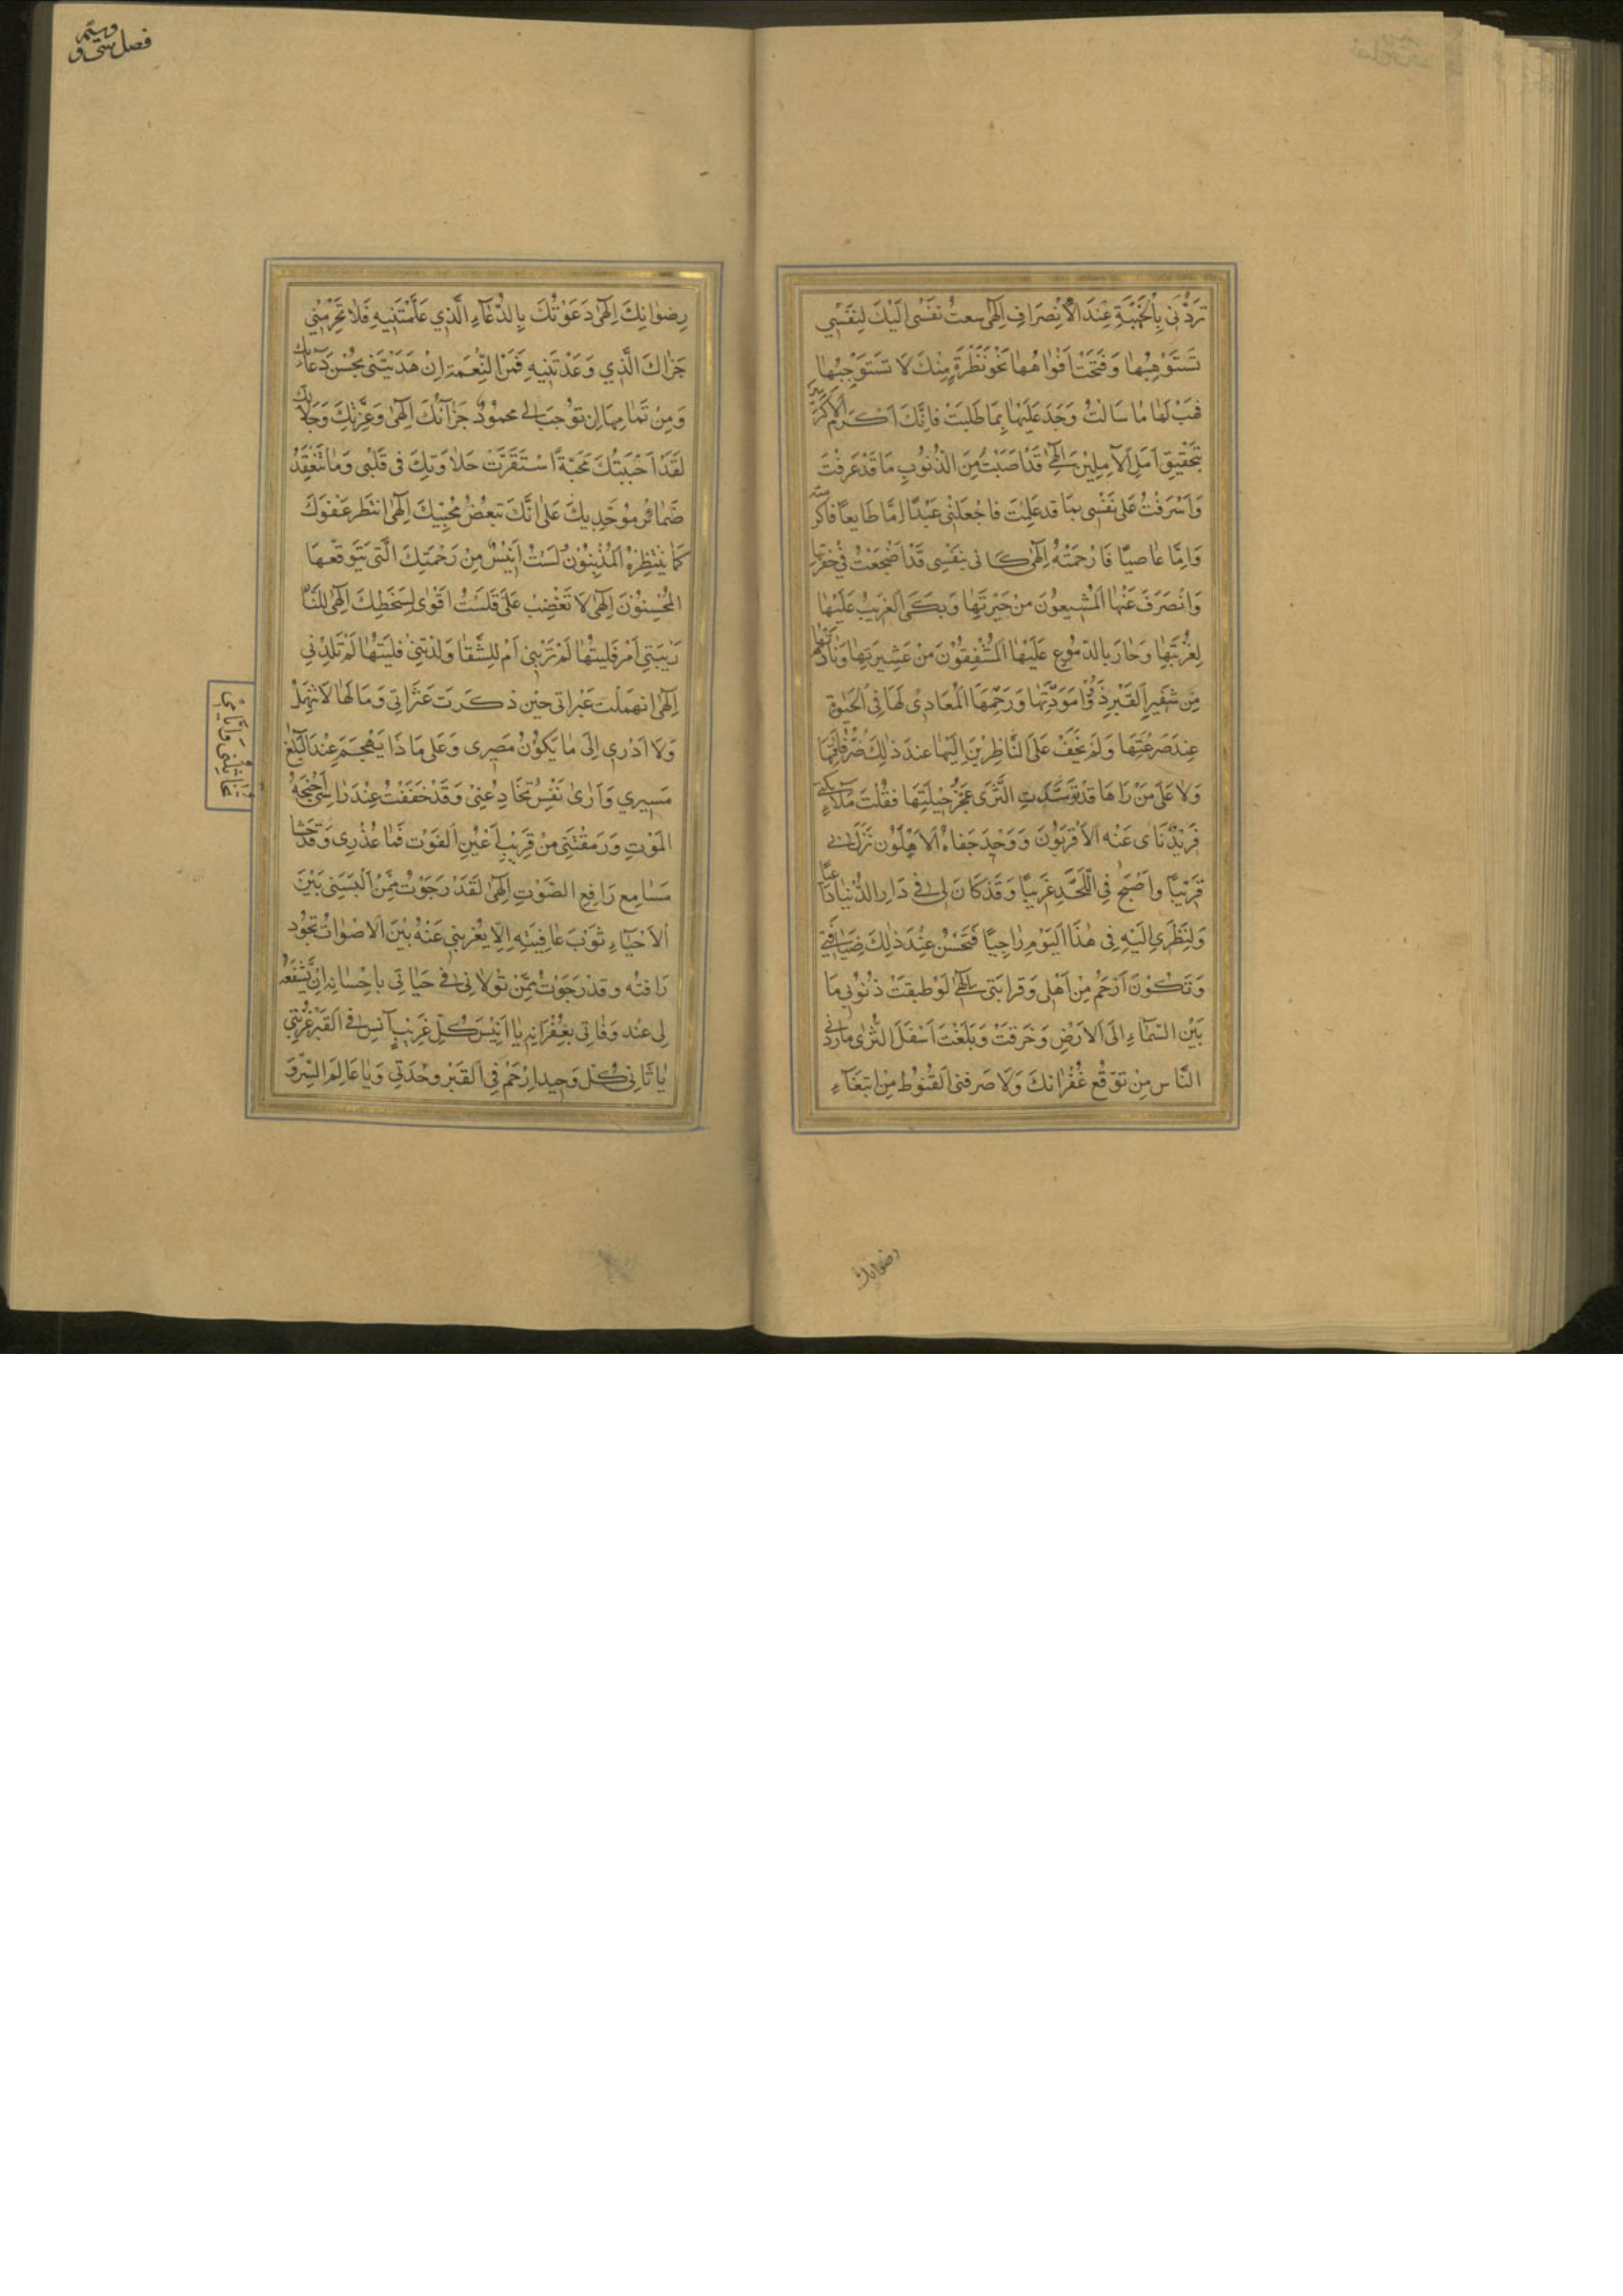 تَرُدَّنى بِالْخَيْبَةِ عِنْدَ الْاِنْصِرَافِ اِلٰهى سعت نَفْسى اِلَيْكَ لِنَفْسِي
تَسْتَوْهِبُهٰا وَفَتَحَتْ اَفْواهُهٰا نَحْوَ نَظْرَةٍ مِنْكَ لَا تَسْتَوْجِبُهٰا
فهَبْ لَهٰا مٰا سَالَتْ وَجُدْ عَلَيْهٰا بِمَا طَلَبَتْ فَاِنَّكَ اَكْرَمُ الْاَكْرَمينَ
بِتَحْقيقِ اَمَلِ الْاٰمِلِيْنَ اِلٰهى قَدْ اَصَبْتُ مِنَ الذُّنُوْبِ مَا قَدْ عَرَفْتَ
وَاَسْرَفْتُ عَلٰى نَفْسى بِمَا قد عَلِمْتَ فَاجْعَلْنى عَبْدًا اِمَّا طَايِعًا فَاكْرَمْتَه
وَاِمَّا عَاصيًا فَارْحَمْتَهُ اِلٰهى كانى بنَفْسِى قَدْ اُضْجِعَتْ فى حُفْرَتِهٰا
وَانْصَرَفَ عَنْهَا الْمُشَيِّعُوْنَ مِنْ جيْرَتِهٰا وَبَكَى الْغَريْبُ عَلَيْهٰا
لِغُرْبَتِهٰا وَجَادَ بِالدُّمُوْعِ عَلَيْهٰا الْمُشْفِقُوْنَ مِنْ عَشِيرَتِهٰا وَنَادٰيهٰا
مِنْ شَفِيرِ الْقَبْرِ ذَوُوْا مَوَدَّتِهٰا وَرَحِمَهَا الْمُعَادِى لَهَا فِى الْحَيٰوةِ
عِنْدَ صَرْعَتِهَا وَلَمْ يَخْفَ عَلَى النَّاظِرِيْنَ اِلَيْهَا عند ذٰلِكَ ضُرُّ فَاقَتِهَا
وَلٰا عَلٰى مَنْ رَاهَا قَدْ تَوَسَّدَتِ الثَّرٰى عَجْزُ حيْلَتِهَا فقُلْتَ مَلٰائِكَتى
فَريْدٌ نَاى عَنْهُ الْاَقْرَبُوْنَ وَوَحْيدٌ جَفَاهُ الْاَهْلُوْن نَزَلَ بى
قَرِيْبًا وَاَصْبَحَ فِى اللَّحْدِ غَرِيبًا وَقَدْ كَانَ لى فى دَارِ الدُّنْيٰا دَاعِيًا
وَلِنَظَرى اِلَيْهِ فى هٰذَا الْيَوْمِ رَاجِيًا فَتُحْسِنُ عِنْدَ ذٰلِكَ ضِيَافَتى
وَتَكُوْنُ اَرْحَمَ مِنْ اَهْلى وَقَرَابَتى اِلٰهى لَوْ طبقَتْ ذُنُوْبى مَا
بَيْنَ السَّمَاءِ اِلَى الْاَرْضِ وَخَرَقَتْ وَبَلَغَتْ اَسْفَلَ الثَّرٰى مَا رَدَّنى
النَّاس مِنْ تَوَقُّعِ غُفْرَانِكَ وَلَا صَرَفنى الْقُنُوْطُ مِن ابْتِغَاءِ
رضوانك
فصل سى و
رِضْوٰانِكَ اِلٰهى دَعَوْتُكَ بِالدُّعَاءِ الَّذى عَلَّمْتَنِيهِ فَلَا تَحْرِمْنِي
جَزٰاكَ الَّذِي وَعَدْتَنِيهِ فَمِنَ النِّعْمَةِ اِنْ هَدَيْتَنى بِحُسْنِ دُعَائِكَ
وَمِنْ تَمَامِهَا اِن تُوْجِبَ لى محمُوْدَ جَزَائِكَ اِلٰهى وَعِزَّتِكَ وَجَلَالِكَ
لَقَدْ اَحْبَبْتُكَ مَحَبَّةً اسْتَقَرَّتْ حَلَاوَتُكَ فى قَلْبى وَمَا تَنْعَقِدُ
ضَمَائِرُ مُوَحِّديكَ عَلٰى اَنَّكَ تبْغُضُ مُحِبِّيكَ اِلٰهى اِنْتَظِرُ عَفْوَكَ
كَمَا يَنْتَظِرُهُ الْمُذْنِبُوْنَ لَسْتُ اَيْئَسُ مِنْ رَحْمَتِكَ الَّتى يَتَوَقَّعُهَا
الْمُحْسِنُوْنَ اِلٰهى لَا تَغْضِبْ عَلَىَّ فَلَسْتُ اَقْوٰى لِسَخَطِكَ اِلٰهى لِلنَّارِ
رَبَّتْنى اُمّى فَلَيْتَهٰا لَمْ تُرَبِّنى اَمْ لِلشَّقٰا وَلَدَتْنى فَلَيْتَهٰا لَمْ تَلِدْنى
اِلٰهى انْهَمَلَتْ عَبَرَاتى حِيْنَ ذَكَرَتْ عَثَرَاتى وَمَا لَهٰا لَا تَنْهَمِلُ
وَلَا اَدْرى اِلٰى مٰا يَكُوْنُ مَصِيرى وَعَلٰى مَا ذَا يَهْجُمُ عِنْدَ الْبَلَاغِ
مَسِيرى وَاَرٰى نَفْسى تُخَادِعُنى وَقَدْ خَفَقَتْ عِنْدَ رَاسى اَجْنِحَةُ
الْمَوْتِ وَرَمَقَتْنى مِنْ قَرِيْبٍ اَعْيُنُ الْفَوْتِ فَمَا عُذْرِى وَقَدْ حَشَا
مَسَامِعى رَافِعُ الصَّوْتِ اِلٰهى لَقَدْ رَجَوْتُ مِمَّنْ اَلْبَسَنى بَيْنَ
الْاَحْيَاءِ ثَوْبَ عَافِيَتِهِ اِلَّا يعْرِيَنى عَنْهُ بَيْنَ الْاَمْوَاتِ بِجُوْدِ
رَافته وَقَدْ رَجَوْتُ مِمَّنْ تَوَلَّانى فى حَيٰاتى بِاِحْسَانِهِ اَنْ يَشْفَعَهُ
لى عِنْدَ وَفَاتى بِغُفْرَانِهِ يٰا اَنِيْسَ كُلِّ غَرِيْبٍ اٰنِسْ فى الْقَبْرِ غُرْبَتى
يٰا ثَانى كُلِّ وَحِيدٍ اِرْحَمْ فِى الْقَبْرِ وَحْدَتى وَيٰا عَالِمَ السِّرِّ وَ